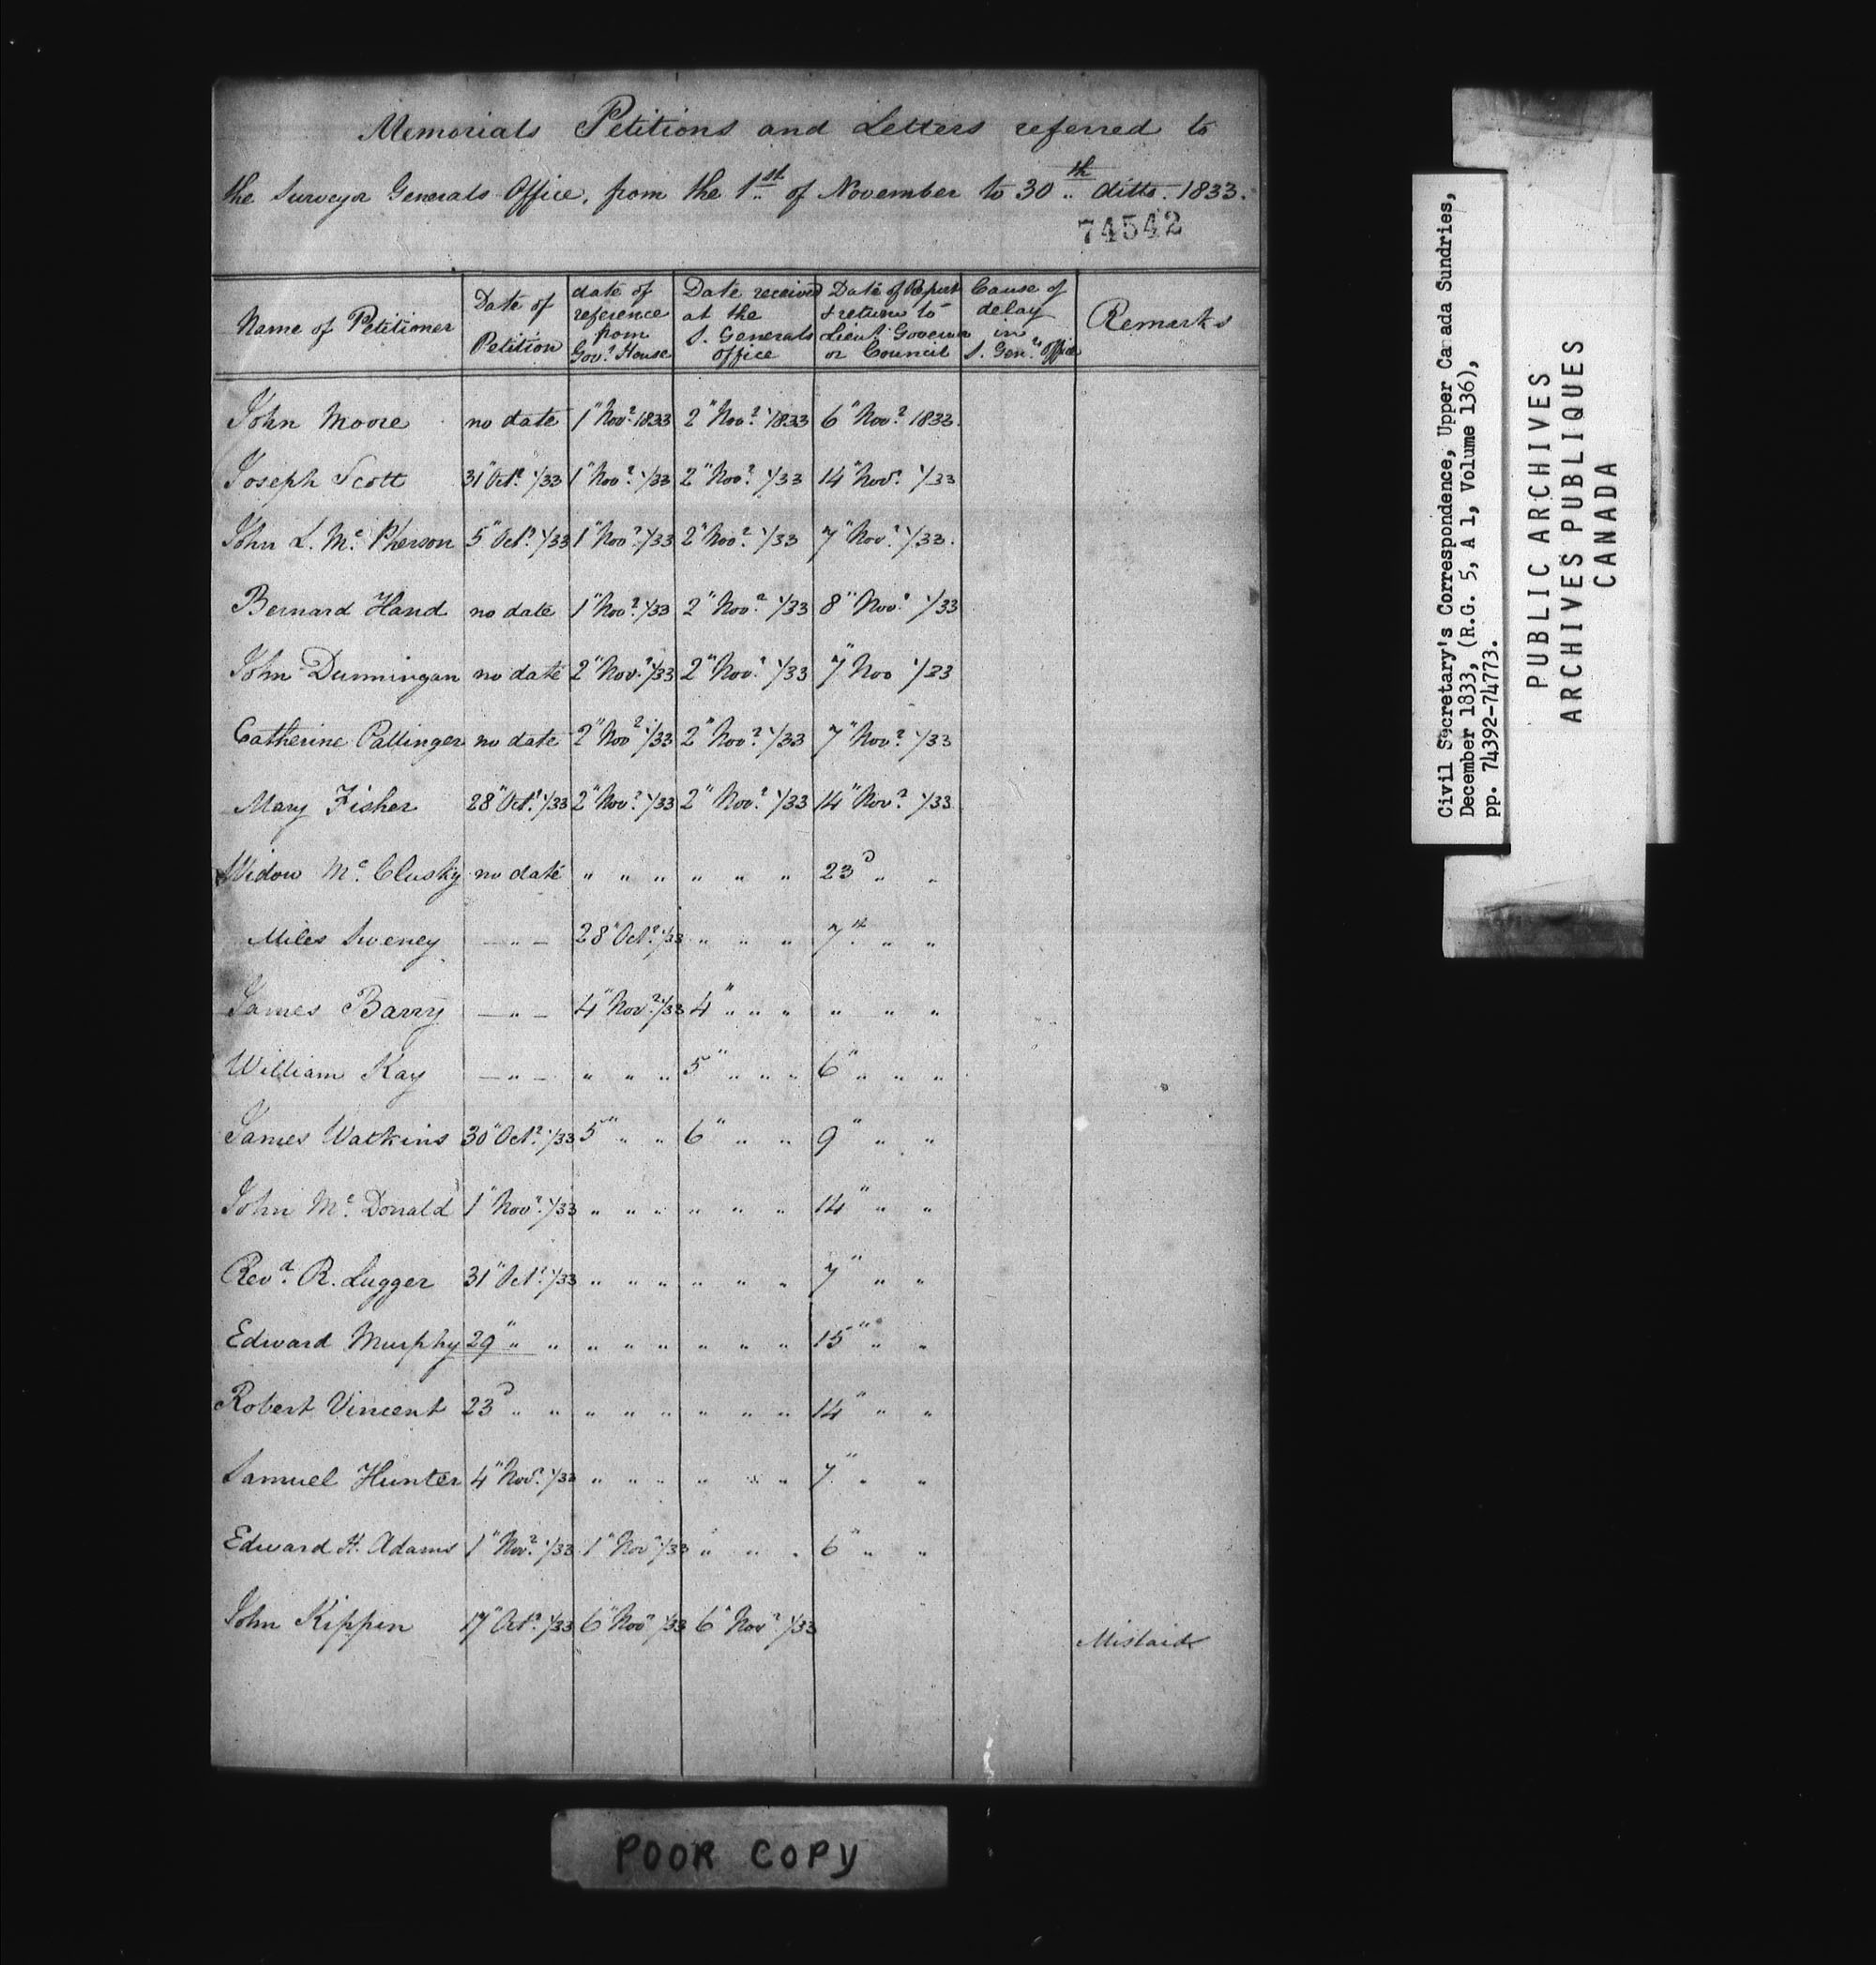 Memorials Petitions and Letters referred to
the Surveyor Generals Office, from the 1st of November to 30th ditto. 1833.
74542
Name of Petitioner | Date of Petition | date of reference from Govt House | Date received at the S. Generals office | Date of Report & return to Lieut Governor or Council | Cause of delay in S. Genls Office | Remarks
John Moore | no date | 1" Novr 1833 | 2" Novr 1833 | 6" Novr 1833.
Joseph Scott | 31" Octr 1/33 | 1" Novr 1/33 | 2" Novr 1/33 | 14" Novr 1/33
John L. Mc Pherson | 5" Octr 1/33 | 1" Novr 1/33 | 2" Novr 1/33 | 7" Novr 1/33.
Bernard Hand | no date | 1" Novr 1/33 | 2" Novr 1/33 | 8" Novr 1/33
John Dunningan | no date | 2" Novr 1/33 | 2" Novr 1/33 | 7" Nov 1/33
Catherine Pallinger | no date | 2" Novr 1/33 | 2" Novr 1/33 | 7" Novr 1/33
Mary Fisher | 28" Octr 1/33 | 2" Novr 1/33 | 2" Novr 1/33 | 14" Novr 1/33
Widow Mc Clusky | no date | " " " | " " " | 23d " "
Miles Sweney | — " — | 28" Octr 1/33 | " " " | 7th " "
James Barry | — " — | 4" Novr 1/33 | 4" " " " | " " "
William Kay | — " — | " " " | 5" " " " | 6" " " "
James Watkins | 30" Octr 1/33 | 5" " " | 6" " " | 9" " "
John Mc Donald | 1" Novr 1/33 | " " " | " " " | 14" " "
Revd R. Lugger | 31" Octr 1/33 | " " " | " " " | 7" " "
Edward Murphy | 29" " " | " " " | " " " | 15" " "
Robert Vincent | 23d " " | " " " | " " " | 14" " "
Samuel Hunter | 4" Novr 1/33 | " " " | " " " | 7" " "
Edward H. Adams | 1" Novr 1/33 | 1" Novr 1/33 | " " " | 6" " "
John Kippen | 17" Octr 1/33 | 6" Novr 1/33 | 6" Novr 1/33 | Mislaid
POOR COPY
Civil Secretary's Correspondence, Upper Canada Sundries,
December 1833, (R.G. 5, A 1, Volume 136),
pp. 74392-74773.
PUBLIC ARCHIVES
ARCHIVES PUBLIQUES
CANADA